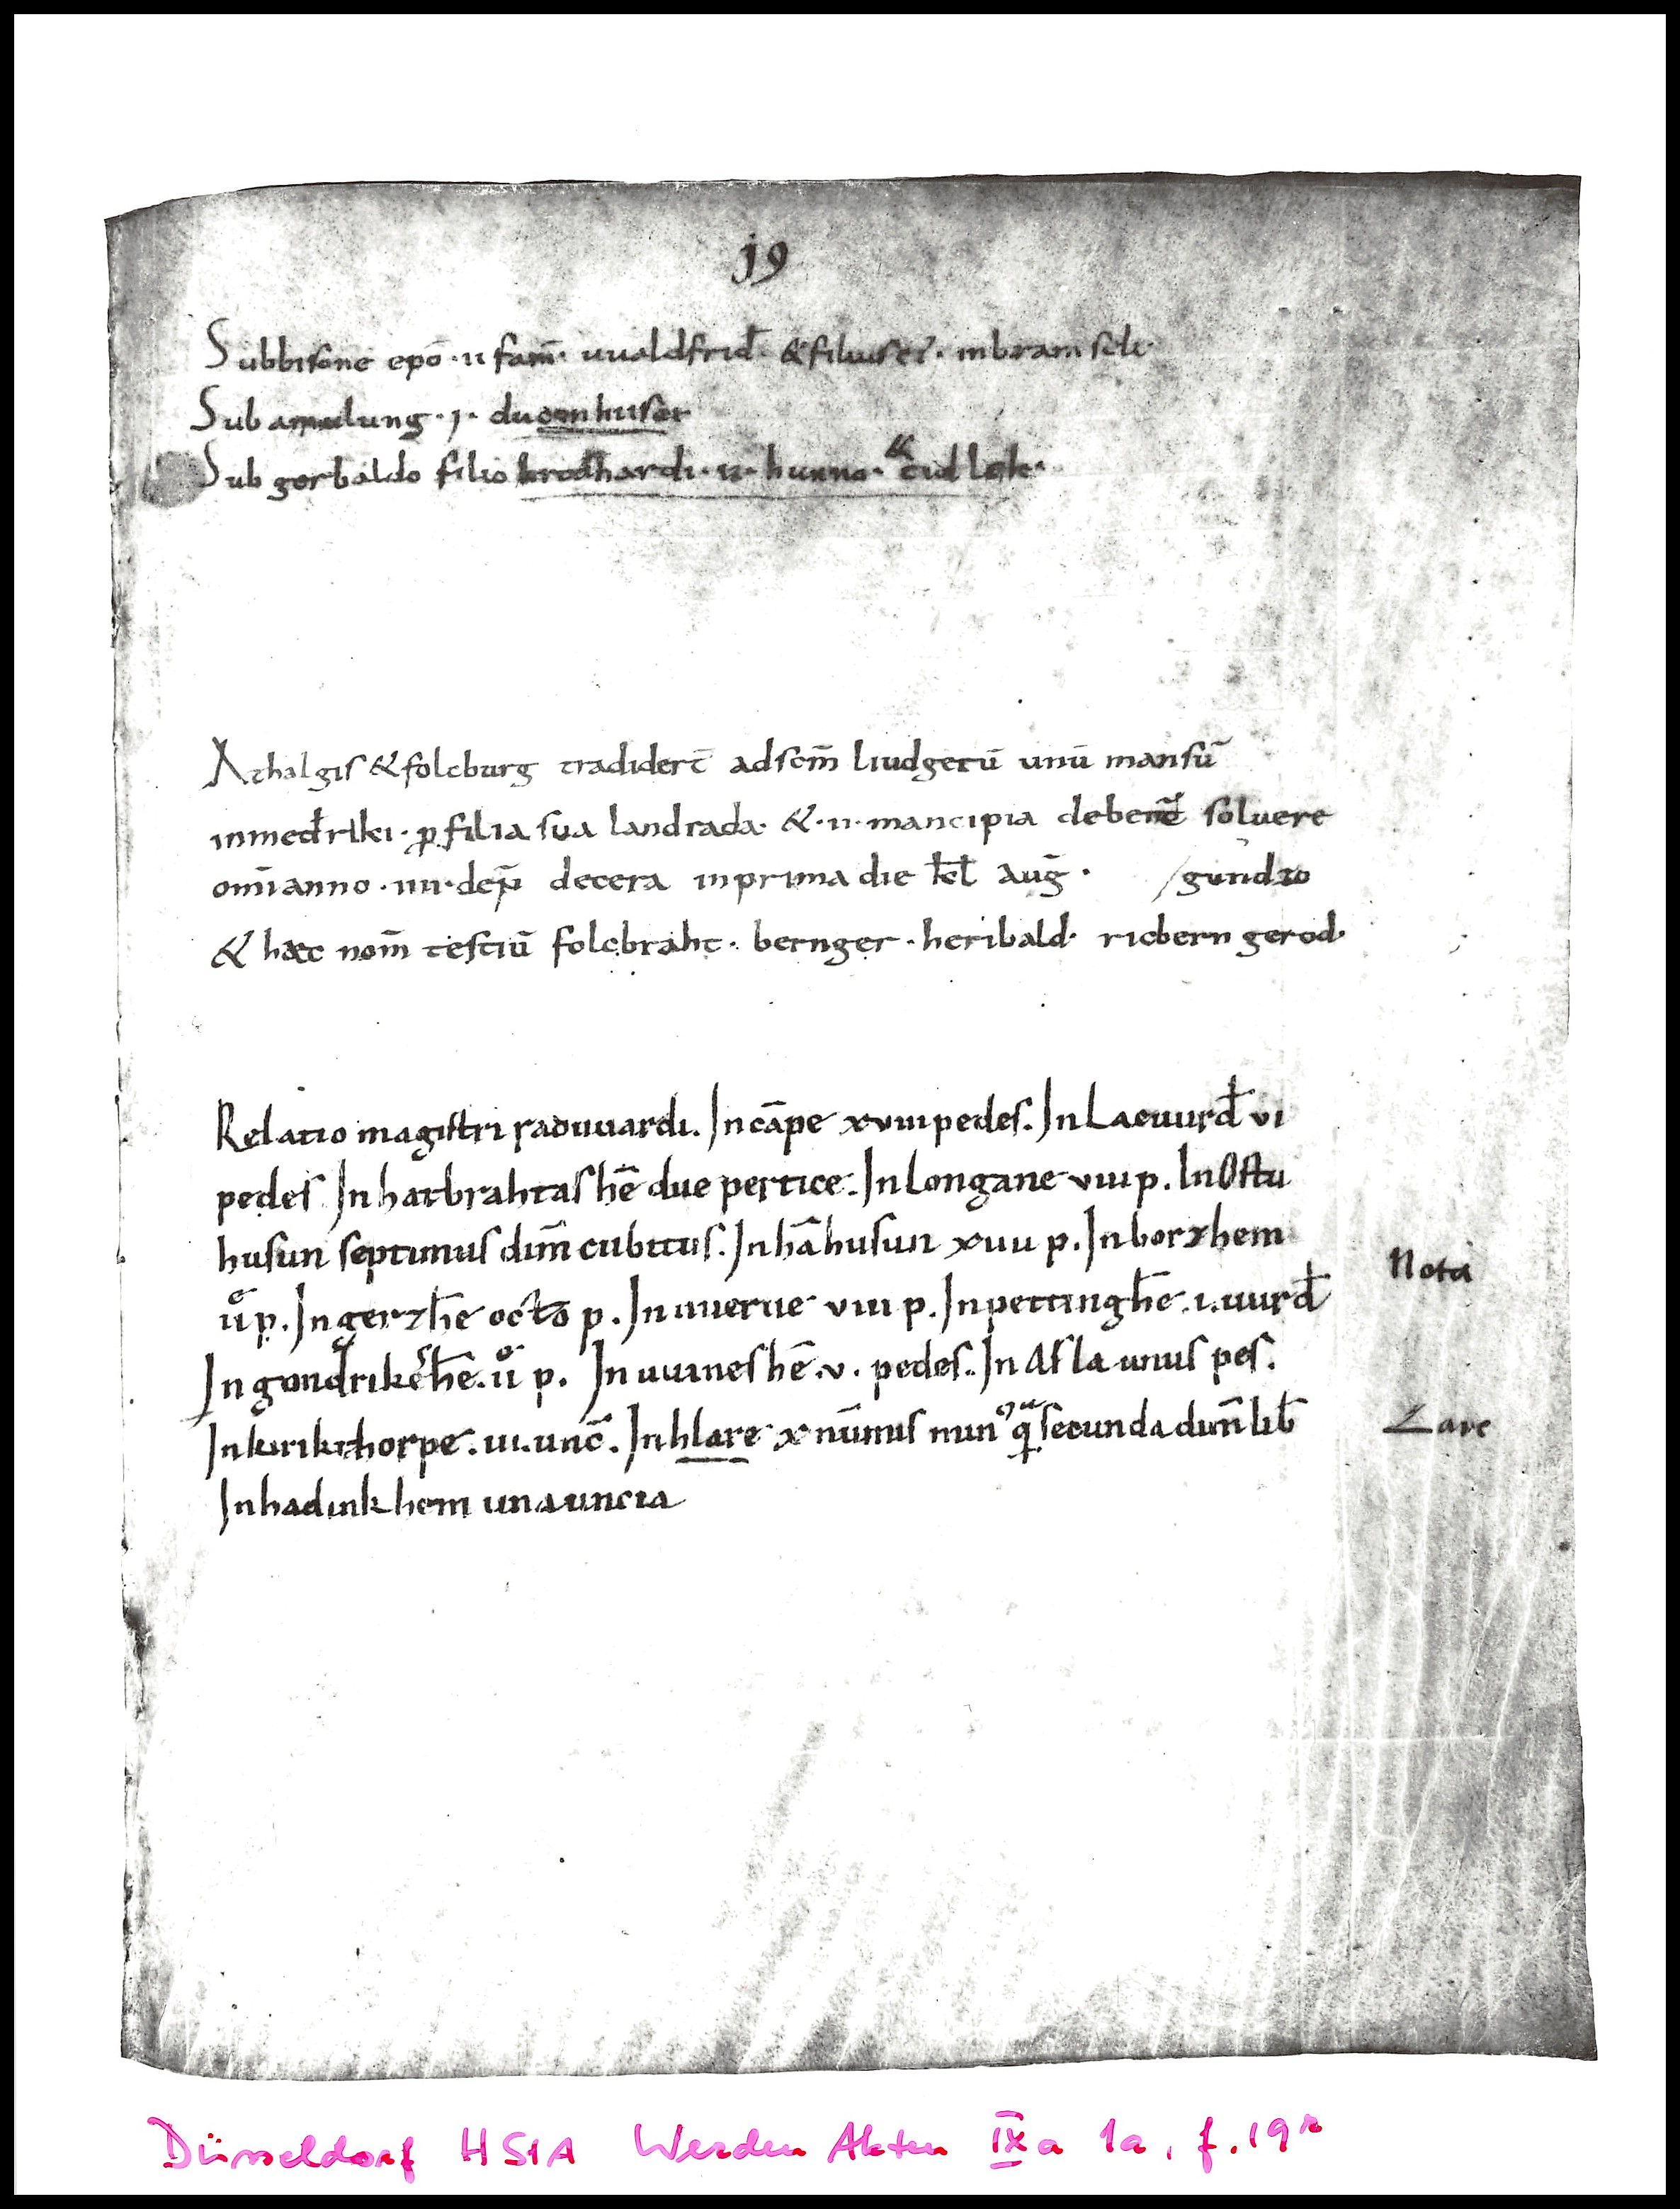 19
Subbisone epō · ii fam̄ · uualdfrid̄ · & filius ei · in bramseli
Sub amulung · i · duomhuser
Sub gerbaldo filio brodhardi · ii · hunno · & tiad leik ·
Athalgis & folcburg tradider̄t ad scm̄ liudgerū unū mansū
in med̄riki · ꝑ filia sua landrada · & · ii · mancipia debent soluere
om̄i anno · iiii · den̄ decera in prima die kl̄ auḡ · / gundzo
& haec nom̄ testiū folcbraht · bernger · heribald · ricbern gerod ·
Relatio magistri raduuardi. In cāpe xviii pedes. In Laeuurd̄ vi
pedes In hatbrahtashē due pertice. In Longane viii p. In Ostu
husun septimus dim̄ cubitus. In hāhusun xuii p. In borzhem
p. In gerzhē octo p. In uuerue viii p. In pettinghē. i. uurd̄
In gondrikeshē. p. In uuineshē. v. pedes. In Asla unus pes.
In kirikithorpe. iii. unc̄. In hlare x nūmis min᾽ secunda dim̄ lib̄
In hadinkhem una uncia
Nota
Lare
Düsseldorf HStA Werden Akten IXa 1a, f. 19r